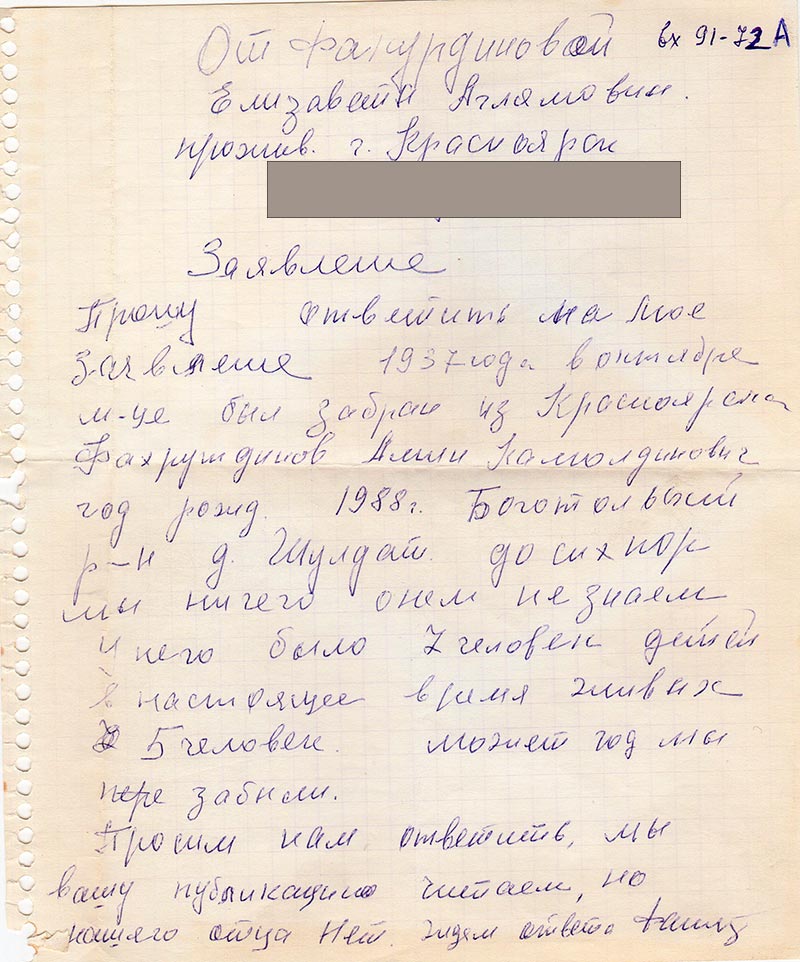 От Факурдиновой вх 91-72А
Елизавети Аглямовни.
прожив. г. Красноярск
Заявление
Прошу ответить на мое
Заявление 1937 года в октябре
м-це был забран из Красноярска
Фахрутдинов Амин Камолдинович
год рожд. 1988г. Боготольский
р-н д. Шулдат. до сих пор
мы ничего о нем не знаем
У него было 7 человек детей
в настоящее время живых
5 человек. может год мы
забыли.
Просим нам ответить, мы
вашу публикацию читаем, но
нашего отца нет. Ждем ответа